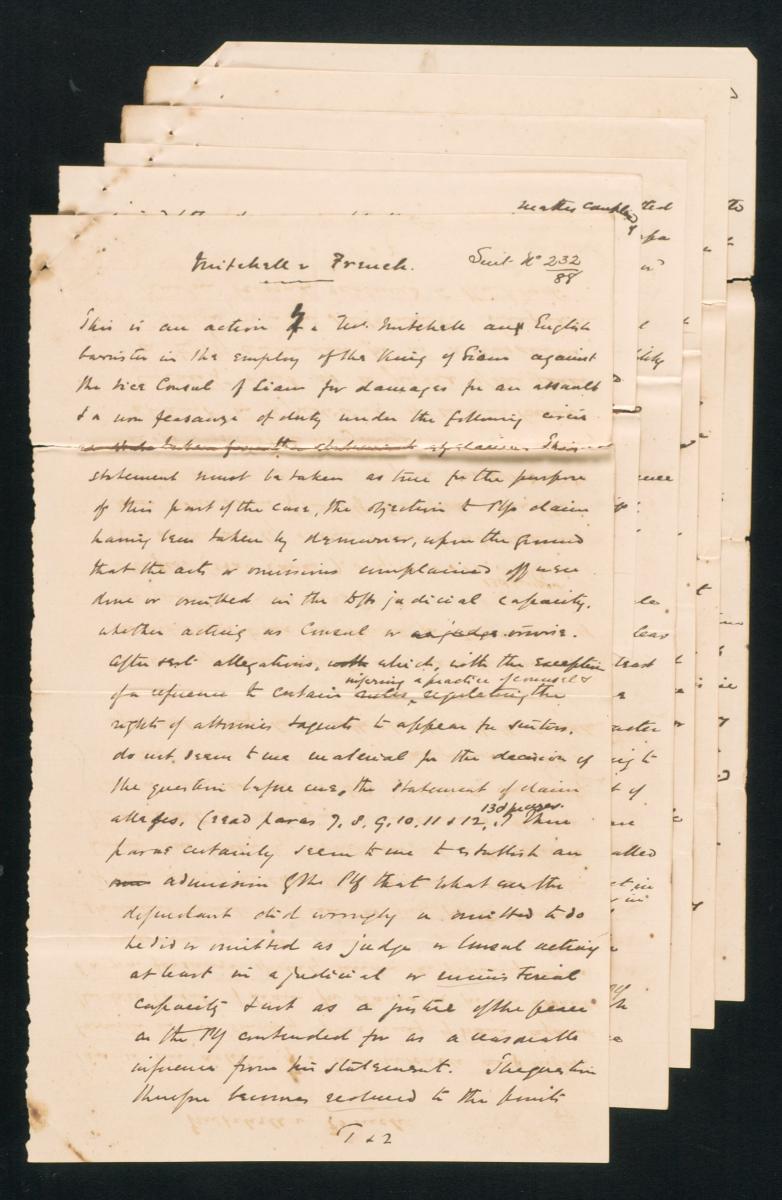 Mitchell v French. Suit No 232/88
This is an action by a Mr. Mitchell an English
barrister in the employ of the King of Siam against
the Vice Consul of Siam for damages for an assault
& a non feasance of duty under the following circs
taken from the statement of claim This
statement must be taken as true for the purpose
of this part of the case, the objection to Plfs claim
having been taken by demurrer, upon the ground
that the acts or omissions complained of were
done or omitted in the Dfts judicial capacity,
whether acting as Consul or as judge
After allegations, with which, with the exception
inferring a practice of counsel &
of a reference to certain rules, regulating the
rights of attornies & agents to appear for suitors,
do not seem to me material for the decision of
the question before me, the statement of claim
13d
alleges, (read paras 7, 8, 9, 10, 11 & 12, ) These
paras certainly seem to me to establish an
admission by the Plf that whatever the
defendant did wrongly or omitted to do
he did or omitted as judge or Consul acting
at least in a judicial or ministerial
capacity & not as a justice of the peace
as the Plf contended for as a reasonable
inference from his statement. The question
therefore becomes reduced to the points
1 & 2
matter
to